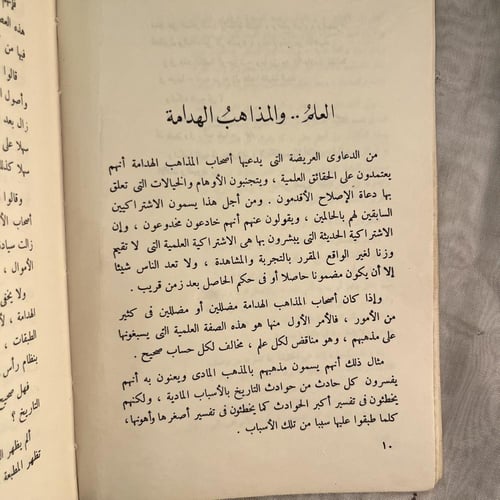 العلمُ .. والمذاهبُ الهدامة
من الدعاوى العريضة التى يدعيها أصحاب المذاهب الهدامة أنهم
يعتمدون على الحقائق العلمية ، ويتجنبون الأوهام والخيالات التى تعلق
بها دعاة الإصلاح الأقدمون . ومن أجل هذا يسمون الاشتراكيين
السابقين لهم بالحالمين ، ويقولون عنهم أنهم خادعون مخدوعون ، وإن
الاشتراكية الحديثة التى يبشرون بها هى الاشتراكية العلمية التى لا تقيم
وزنا لغير الواقع المقرر بالتجربة والمشاهدة ، ولا تعد الناس شيئا
إلا أن يكون مضمونا حاصلا أو فى حكم الحاصل بعد زمن قريب .
وإذا كان أصحاب المذاهب الهدامة مضللين أو مضللين فى كثير
من الأمور ، فالأمر الأول منها هو هذه الصفة العلمية التى يسبغونها
على مذهبهم ، وهو مناقض لكل علم ، مخالف لكل حساب صحيح .
مثال ذلك أنهم يسمون مذهبهم بالمذهب المادى ويعنون به أنهم
يفسرون كل حادث من حوادث التاريخ بالأسباب المادية ، ولكنهم
يخطئون فى تفسير أكبر الحوادث كما يخطئون فى تفسير أصغرها وأهونها ،
كلما طبقوا عليها سببا من تلك الأسباب .
١٠
هذه العص
فيها من
قالوا
وأصول ا
زال بعد
سهلا على
سهلا كذلك
وقالوا
أصحاب الأ
زالت سيادة
الأموال ،
ولا يخفى
الهدامة ، لأ
الطبقات ،
بنظام رأس
فهل صحيح
التاريخ ؟
ألم يظهر ال
تظهر المطبعة